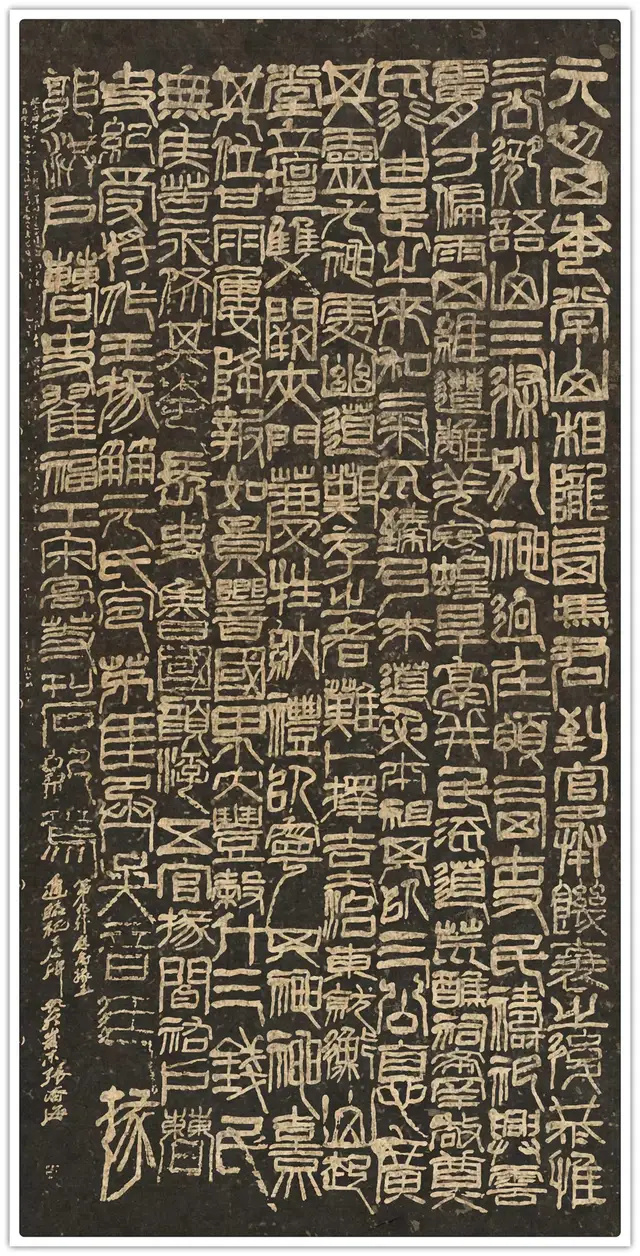 元初四年常山相隴西馮君到官承饑衰之後恭惟
三公御語山三條別神迥在領西吏民禱祀興雲
膚寸徧雨四維遭離羌寇蝗旱鬲并民流道荒醮祠希罕敬奠
不行由是之來和氣不臻乃來道要本祖其以三公德廣
其靈尤神處幽道艱存之者難卜擇吉治東就衡山起
堂立壇雙闕夾門薦牲納禮以寧其神神熹
其位甘雨屢降報如景響國界大豐穀斗三錢民
無疾苦永保其年長史魯國顏浮五官掾閻祐戶曹
史紀受將作王掾元氏令茅匡丞吳音廷掾
郭洪戶曹史翟福工宋高等刊石紀焉
通臨祀三公碑